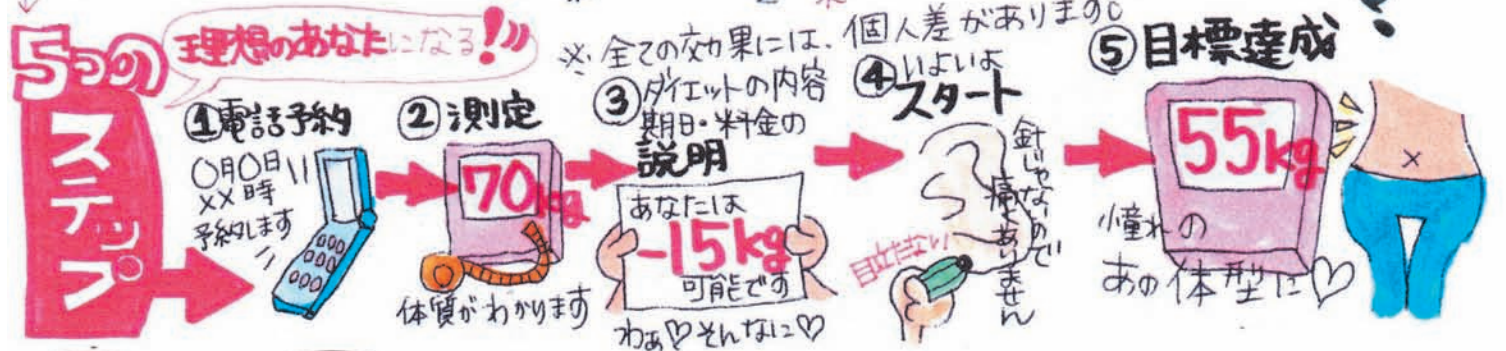 5つの
ステップ
理想のあなたになる!!
※全ての効果には、個人差があります。
①電話予約
〇月〇日
××時
予約します
②測定
70kg
体質がわかります
③ダイエットの内容
期日・料金の
説明
あなたは
-15kg
可能です
わぁ♡そんなに♡
④いよいよ
スタート
針じゃないので
痛くありません
目立たない
⑤目標達成
55kg
憧れの
あの体型に♡